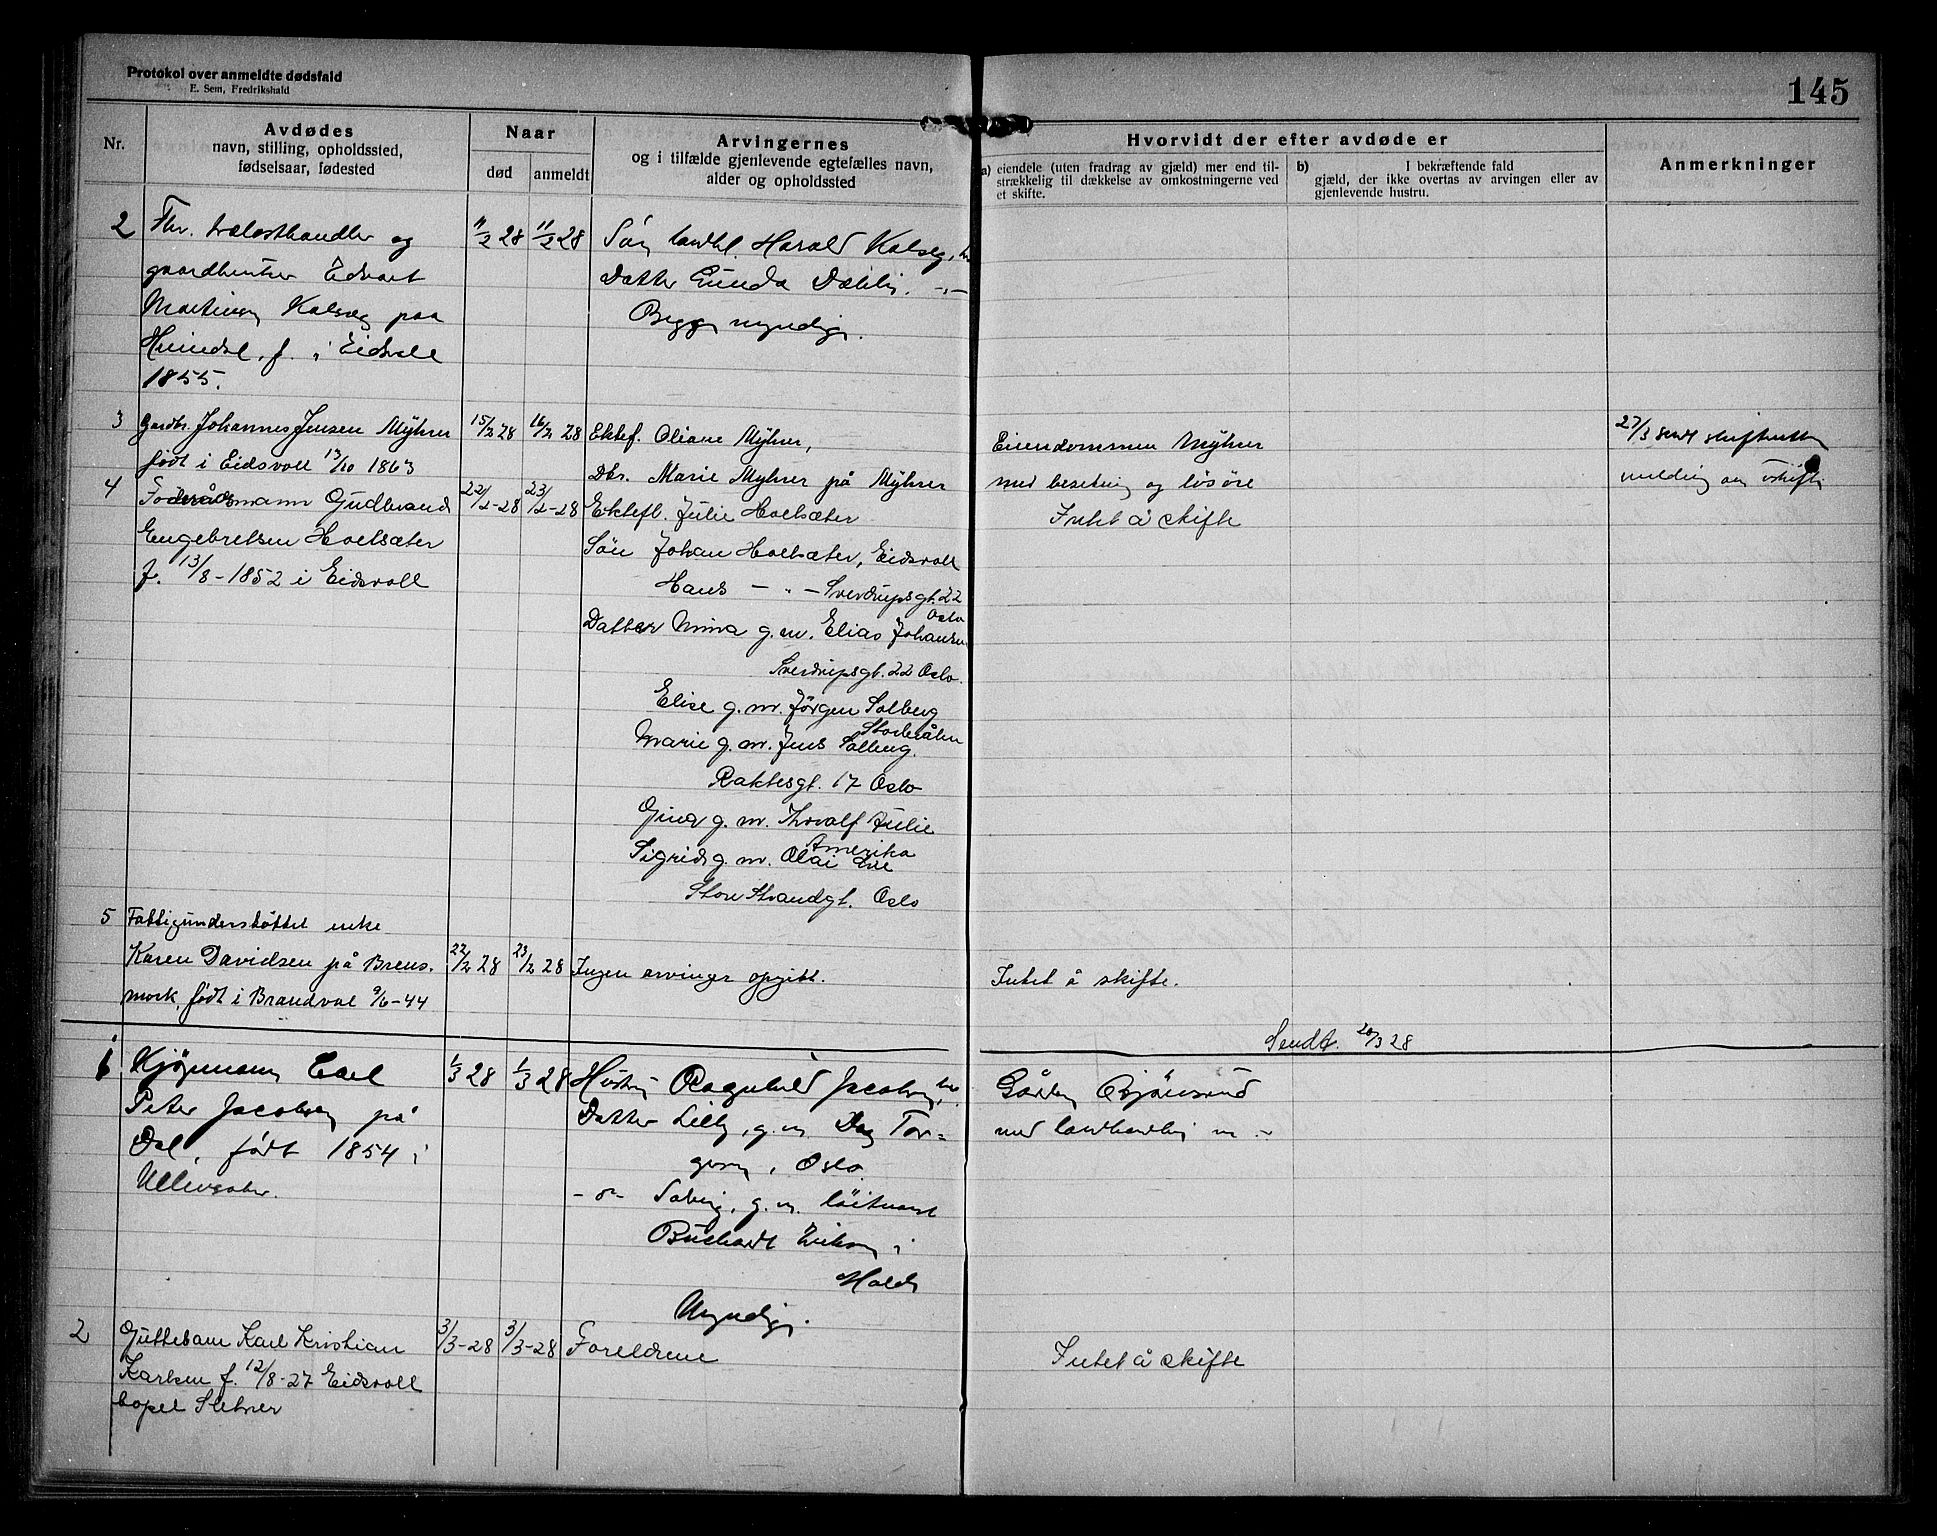 Protokol over anmeldte dødsfald
E. Sem, Fredrikshald
145
Nr.
Avdødes
navn, stilling, opholdssted,
fødselsaar, fødested
Naar
død
anmeldt
Arvingernes
og i tilfælde gjenlevende egtefælles navn,
alder og opholdssted
Hvorvidt der efter avdøde er
a) eiendele (uten fradrag av gjæld) mer end til-
strækkelig til dækkelse av omkostningerne ved
et skifte.
b) I bekræftende fald
gjæld, der ikke overtas av arvingen eller av
gjenlevende hustru.
Anmerkninger
2 Fhr. trælasthandler og
gaardbruker Edvart
Martinsen Kalsæg paa
i Eidsvoll
1855.
11/2 28 11/2 28
Søn landhl. Harald Kalseg,
Datter Gunda Dæhlin. -"-
Begge myndige.
3 Gardbr. Johannes Jensen Myhrer
født i Eidsvoll 13/10 1863
15/2 28 16/2 28
Ektef. Oliane Myhrer,
Dtr. Marie Myhrer på Myhrer
Eiendommen Myhrer
med besetning og løsøre
27/3 sendt skifteretten
melding om uskifte
4 Føderådsmann Gudbrand
Engebretsen Hoelsæter
f. 13/8-1852 i Eidsvoll
22/2-28 23/2-28
Ektefl. Julie Hoelsæter
Søn Johan Hoelsæter, Eidsvoll
Hans — " — Sverdrupsgt. 22
Oslo
Datter Mina g. m. Elias Johansen
Sverdrupsgt. 22 Oslo.
Elise g. m. Jörgen Solberg
Marie g. m. Jens Solberg.
17 Oslo
Gina g. m. Thorvalf Julie
Amerika
Sigrid g. m. Olai
Store Strandgt. Oslo
Intet å skifte
5 Fattigunderstøttet enke
Karen Davidsen på Brens-
mork, født i Brandval 9/6-44
22/2 28 23/2 28
Ingen arvinger opgitt.
Intet å skifte.
Sendt. 20/3 28
1 Kjøpmann Carl
Peter Jacobsen på
Dal, født 1854 i
Ullensaker.
1/3 28 1/3 28
Hustru Ragnhild Jacobsen,
Datter Lilly, g. m. Dag Tor-
gersen, Oslo
- " - Solveig, g. m. løitnant
i
Halden
Myndige.
Gården
med landhandleri m. m.
2 Guttebarn Karl Kristian
Karlsen f. 12/8-27 Eidsvoll
bopel
3/3-28 3/3-28
Foreldrene
Intet å skifte